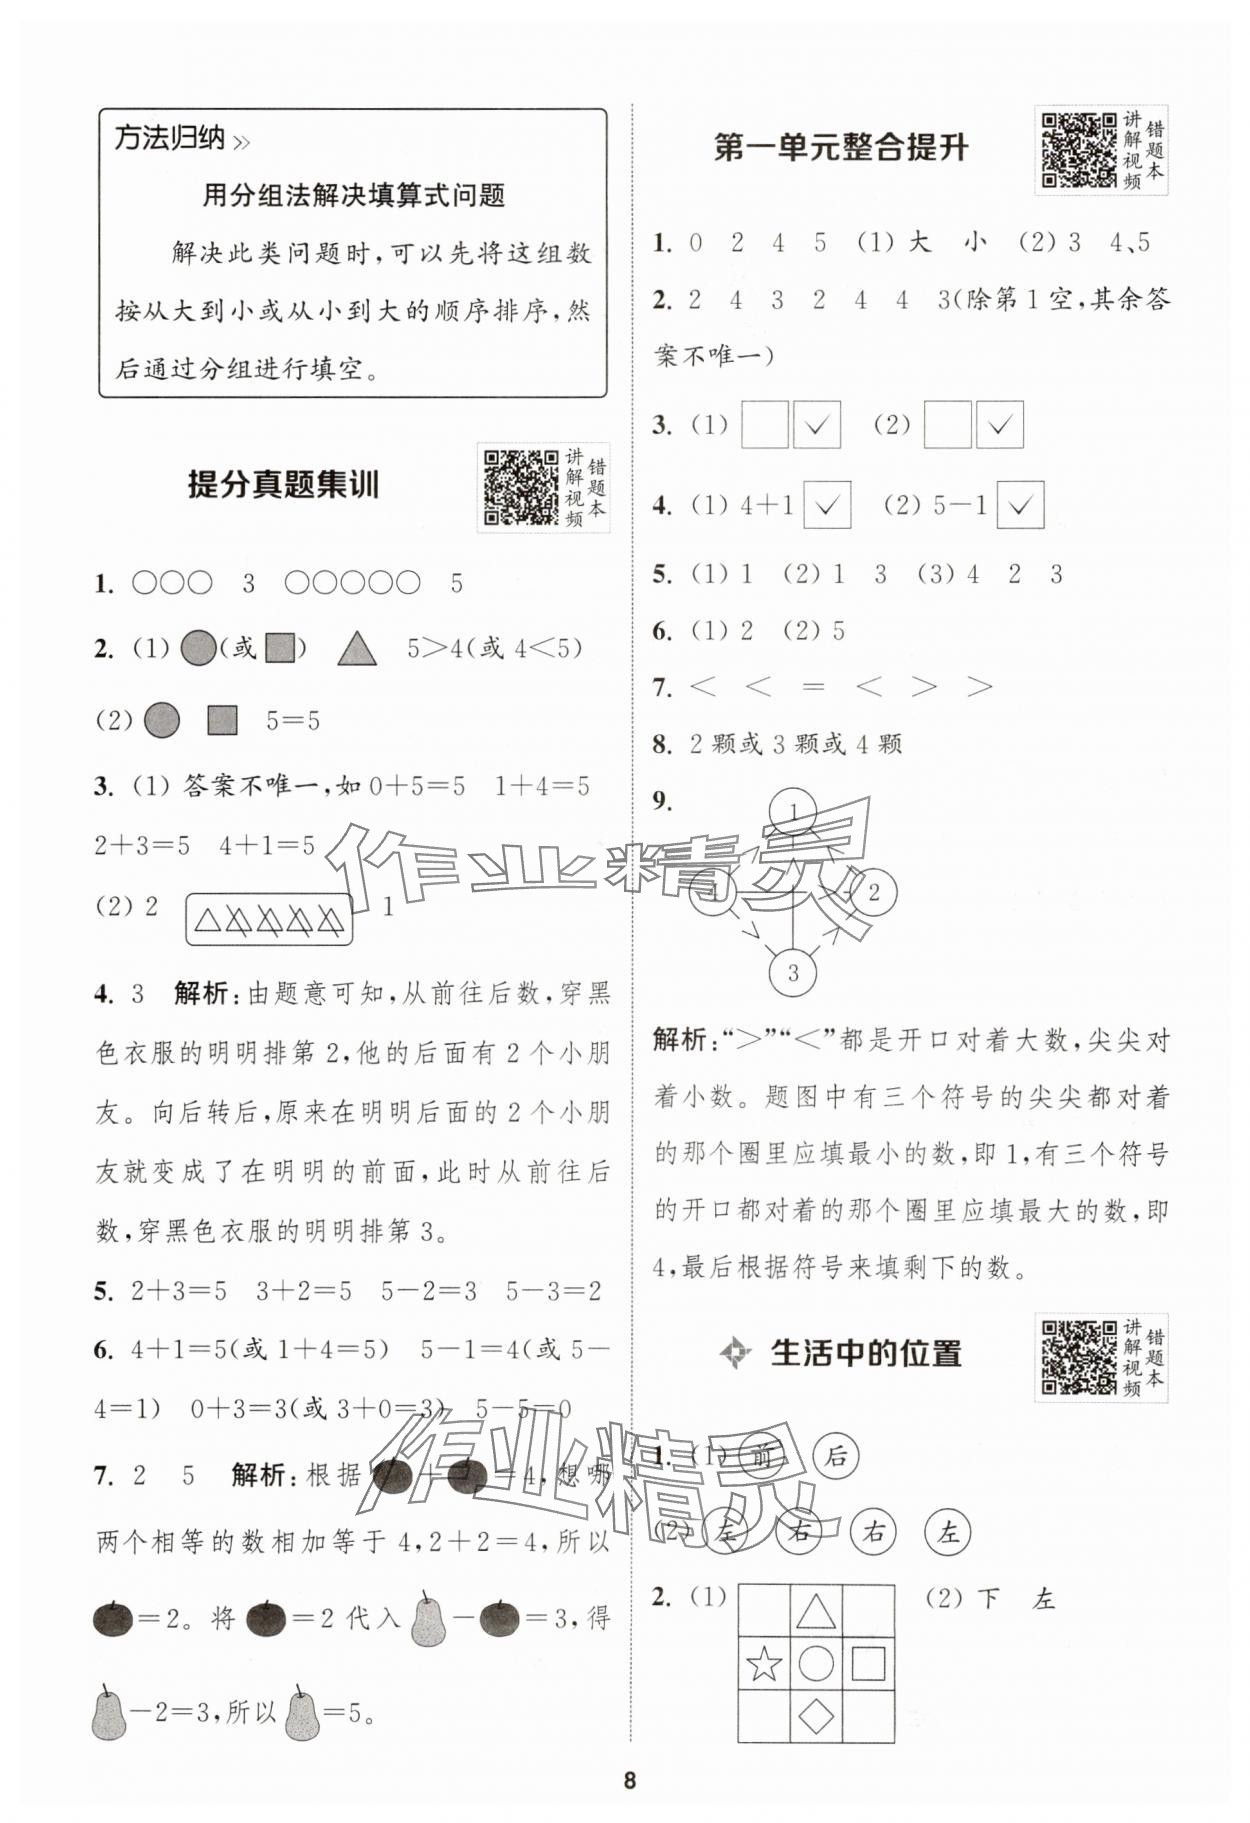 方法归纳 >>
用分组法解决填算式问题
解决此类问题时,可以先将这组数
按从大到小或从小到大的顺序排序,然
后通过分组进行填空。
提分真题集训
讲解视频
错题本
1. ○○○ 3 ○○○○○ 5
2. (1) ●(或■) ▲ 5>4(或4<5)
(2) ● ■ 5=5
3. (1) 答案不唯一,如0+5=5 1+4=5
2+3=5 4+1=5
(2) 2 1
4. 3 解析:由题意可知,从前往后数,穿黑
色衣服的明明排第2,他的后面有2个小朋
友。向后转后,原来在明明后面的2个小朋
友就变成了在明明的前面,此时从前往后
数,穿黑色衣服的明明排第3。
5. 2+3=5 3+2=5 5-2=3 5-3=2
6. 4+1=5(或1+4=5) 5-1=4(或5-
4=1) 0+3=3(或3+0=3) 5-5=0
7. 2 5 解析:根据 + =4,想哪
两个相等的数相加等于4,2+2=4,所以
=2。将 =2代入 - =3,得
-2=3,所以 =5。
第一单元整合提升
讲解视频
错题本
1. 0 2 4 5 (1) 大 小 (2) 3 4、5
2. 2 4 3 2 4 4 3(除第1空,其余答
案不唯一)
3. (1) □ ✓ (2) □ ✓
4. (1) 4+1 ✓ (2) 5-1 ✓
5. (1) 1 (2) 1 3 (3) 4 2 3
6. (1) 2 (2) 5
7. < < = < > >
8. 2颗或3颗或4颗
9.
1
4 2
3
解析:“>”“<”都是开口对着大数,尖尖对
着小数。题图中有三个符号的尖尖都对着
的那个圈里应填最小的数,即1,有三个符号
的开口都对着的那个圈里应填最大的数,即
4,最后根据符号来填剩下的数。
生活中的位置
讲解视频
错题本
1. (1) 前 后
(2) 左 右 右 左
2. (1) △ ☆ ○ □ ◇ (2) 下 左
作业精灵
作业精灵
8